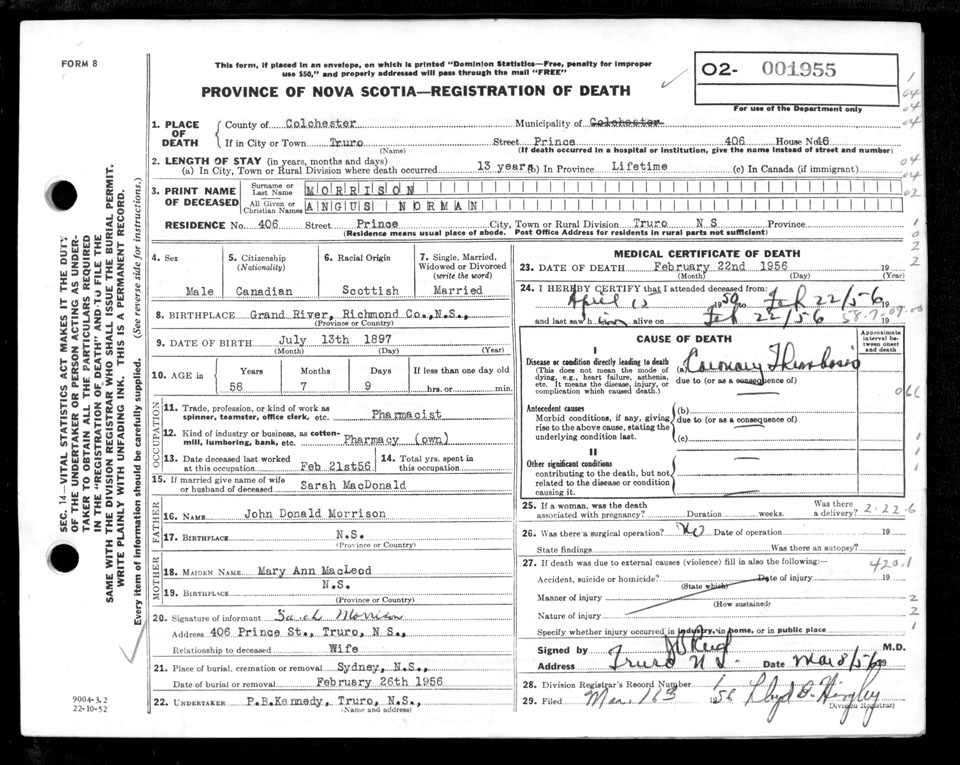 FORM 8
This form, if placed in an envelope, on which is printed "Dominion Statistics—Free, penalty for improper
use $50," and properly addressed will pass through the mail "FREE"
PROVINCE OF NOVA SCOTIA—REGISTRATION OF DEATH
O2- 001955
For use of the Department only
1. PLACE OF DEATH
County of Colchester Municipality of Colchester
If in City or Town Truro Street Prince 406 House No 46
(Name) (If death occurred in a hospital or institution, give the name instead of street and number)
2. LENGTH OF STAY (in years, months and days)
(a) In City, Town or Rural Division where death occurred 13 years (b) In Province Lifetime (c) In Canada (if immigrant)
3. PRINT NAME OF DECEASED
Surname or Last Name MORRISON
All Given or Christian Names ANGUS NORMAN
RESIDENCE No. 406 Street Prince City, Town or Rural Division Truro N S Province
(Residence means usual place of abode. Post Office Address for residents in rural parts not sufficient)
4. Sex
Male
5. Citizenship (Nationality)
Canadian
6. Racial Origin
Scottish
7. Single, Married, Widowed or Divorced (write the word)
Married
8. BIRTHPLACE Grand River, Richmond Co.,N.S.,
(Province or Country)
9. DATE OF BIRTH July 13th 1897
(Month) (Day) (Year)
10. AGE in Years Months Days If less than one day old
58 7 9 hrs. or min.
OCCUPATION
11. Trade, profession, or kind of work as spinner, teamster, office clerk, etc. Pharmacist
12. Kind of industry or business, as cotton-mill, lumbering, bank, etc. Pharmacy (own)
13. Date deceased last worked at this occupation Feb 21st56
14. Total yrs. spent in this occupation
15. If married give name of wife or husband of deceased Sarah MacDonald
FATHER
16. NAME John Donald Morrison
17. BIRTHPLACE N.S.
(Province or Country)
MOTHER
18. MAIDEN NAME Mary Ann MacLeod
19. BIRTHPLACE N.S.
(Province or Country)
20. Signature of informant Sarah Morrison
Address 406 Prince St., Truro, N.S.,
Relationship to deceased Wife
21. Place of burial, cremation or removal Sydney, N.S.,
Date of burial or removal February 26th 1956
22. UNDERTAKER P.B.Kennedy, Truro, N.S.,
(Name and address)
MEDICAL CERTIFICATE OF DEATH
23. DATE OF DEATH February 22nd 1956 19
(Month) (Day) (Year)
24. I HEREBY CERTIFY that I attended deceased from:
April 1950 to Feb 22/56 19
and last saw him alive on Feb 22/56 19
CAUSE OF DEATH
Approximate interval between onset and death
I
Disease or condition directly leading to death
(This does not mean the mode of dying, e.g., heart failure, asthenia, etc. It means the disease, injury, or complication which caused death.)
(a) Coronary Thrombosis
due to (or as a consequence of)
Antecedent causes
Morbid conditions, if any, giving rise to the above cause, stating the underlying condition last.
(b)
due to (or as a consequence of)
(c)
II
Other significant conditions
contributing to the death, but not related to the disease or condition causing it.
25. If a woman, was the death associated with pregnancy? Duration weeks. Was there a delivery?
2.22.6
26. Was there a surgical operation? No Date of operation 19
State findings Was there an autopsy?
27. If death was due to external causes (violence) fill in also the following:
420.1
Accident, suicide or homicide? Date of injury 19
(State which)
Manner of injury
(How sustained)
Nature of injury
Specify whether injury occurred in industry, in home, or in public place
Signed by M.D.
Address Truro N S Date Mar 8/56 19
28. Division Registrar's Record Number
29. Filed Mar. 1956 Lloyd B. Hingley
Division Registrar
SEC. 14—VITAL STATISTICS ACT MAKES IT THE DUTY
OF THE UNDERTAKER OR PERSON ACTING AS UNDER-
TAKER TO OBTAIN ALL THE PARTICULARS REQUIRED
IN THE "REGISTRATION OF DEATH" AND TO FILE THE
SAME WITH THE DIVISION REGISTRAR WHO SHALL ISSUE THE BURIAL PERMIT.
WRITE PLAINLY WITH UNFADING INK. THIS IS A PERMANENT RECORD.
Every item of information should be carefully supplied. (See reverse side for instructions.)
9004-3.2
22-10-52